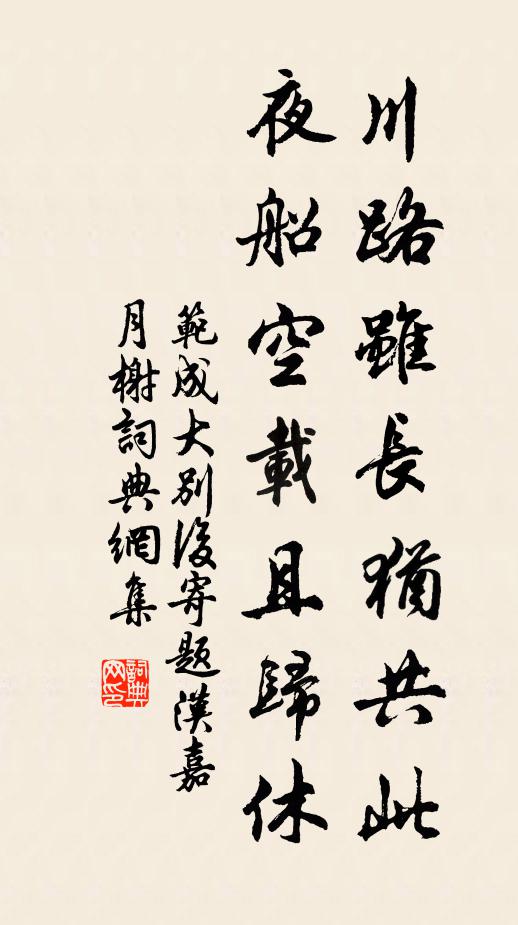 川路雖長猶共此
夜船空載且歸休
範成大別後寄題漢嘉
月榭詞典網集
詞典网印